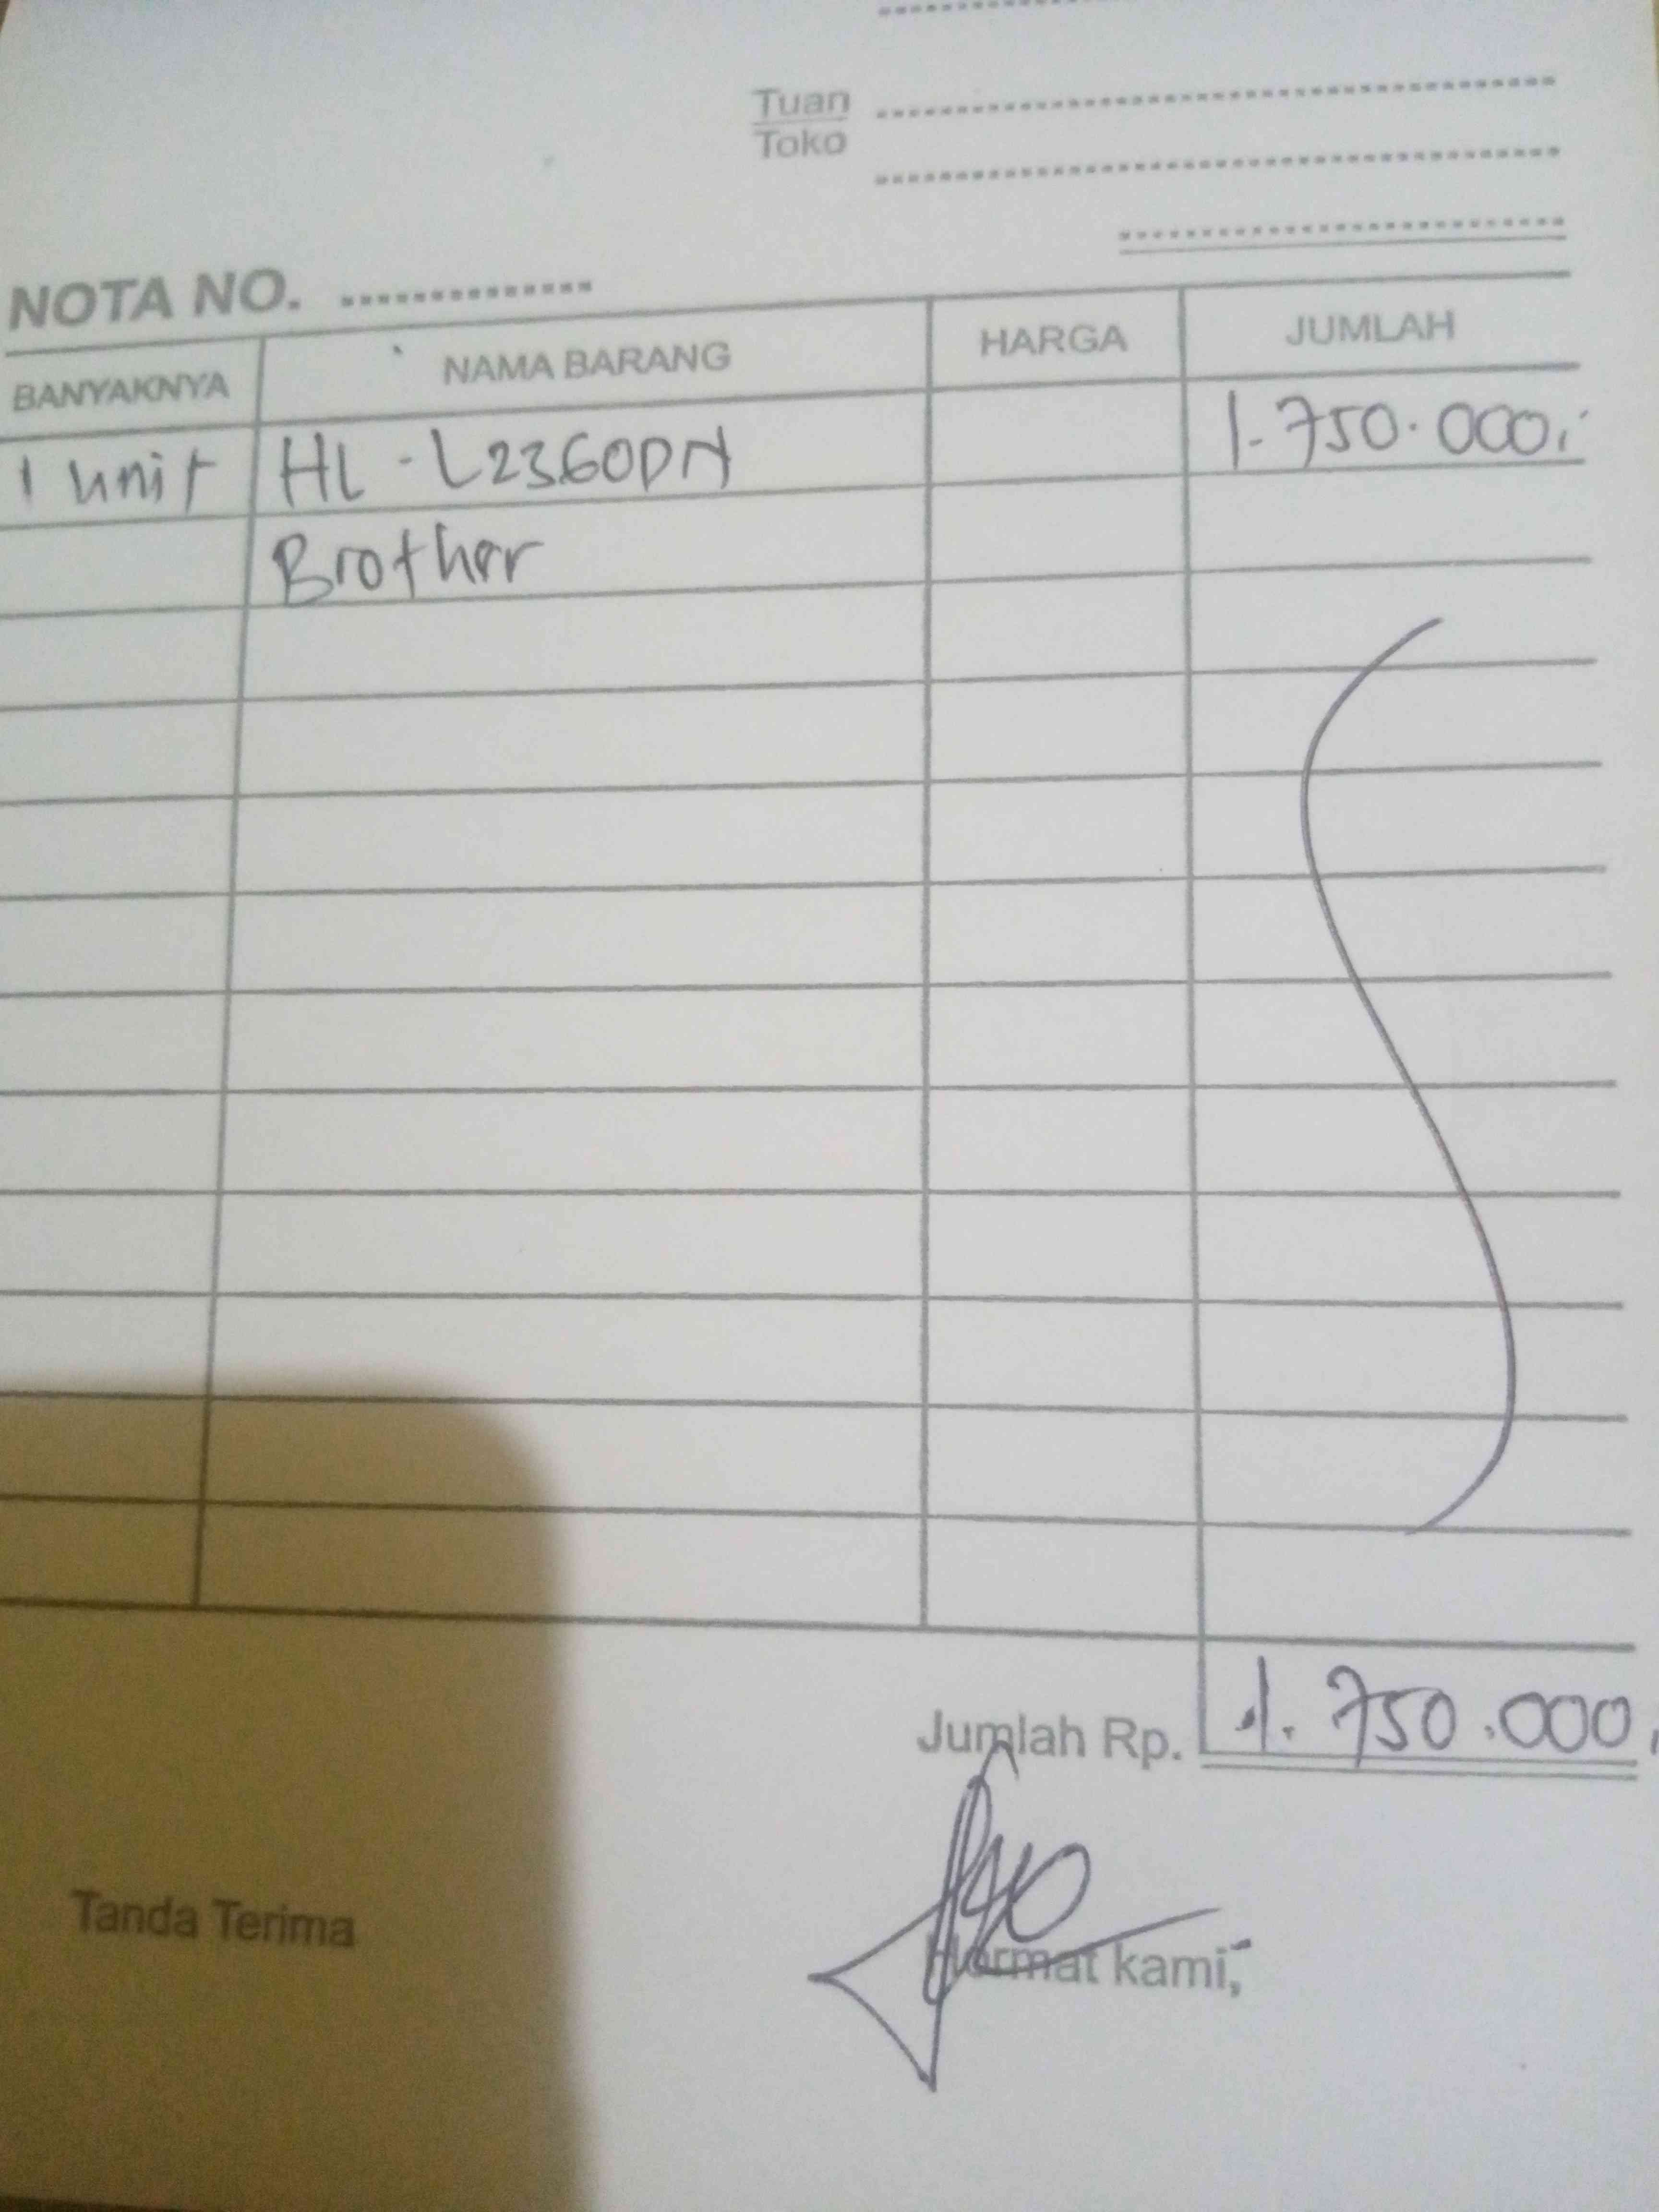 Tuan
Toko
NOTA NO.
BANYAKNYA NAMA BARANG HARGA JUMLAH
1 unit HL - L2360DN 1.750.000,-
Brother
Jumlah Rp. 1.750.000,
Tanda Terima Hormat kami,